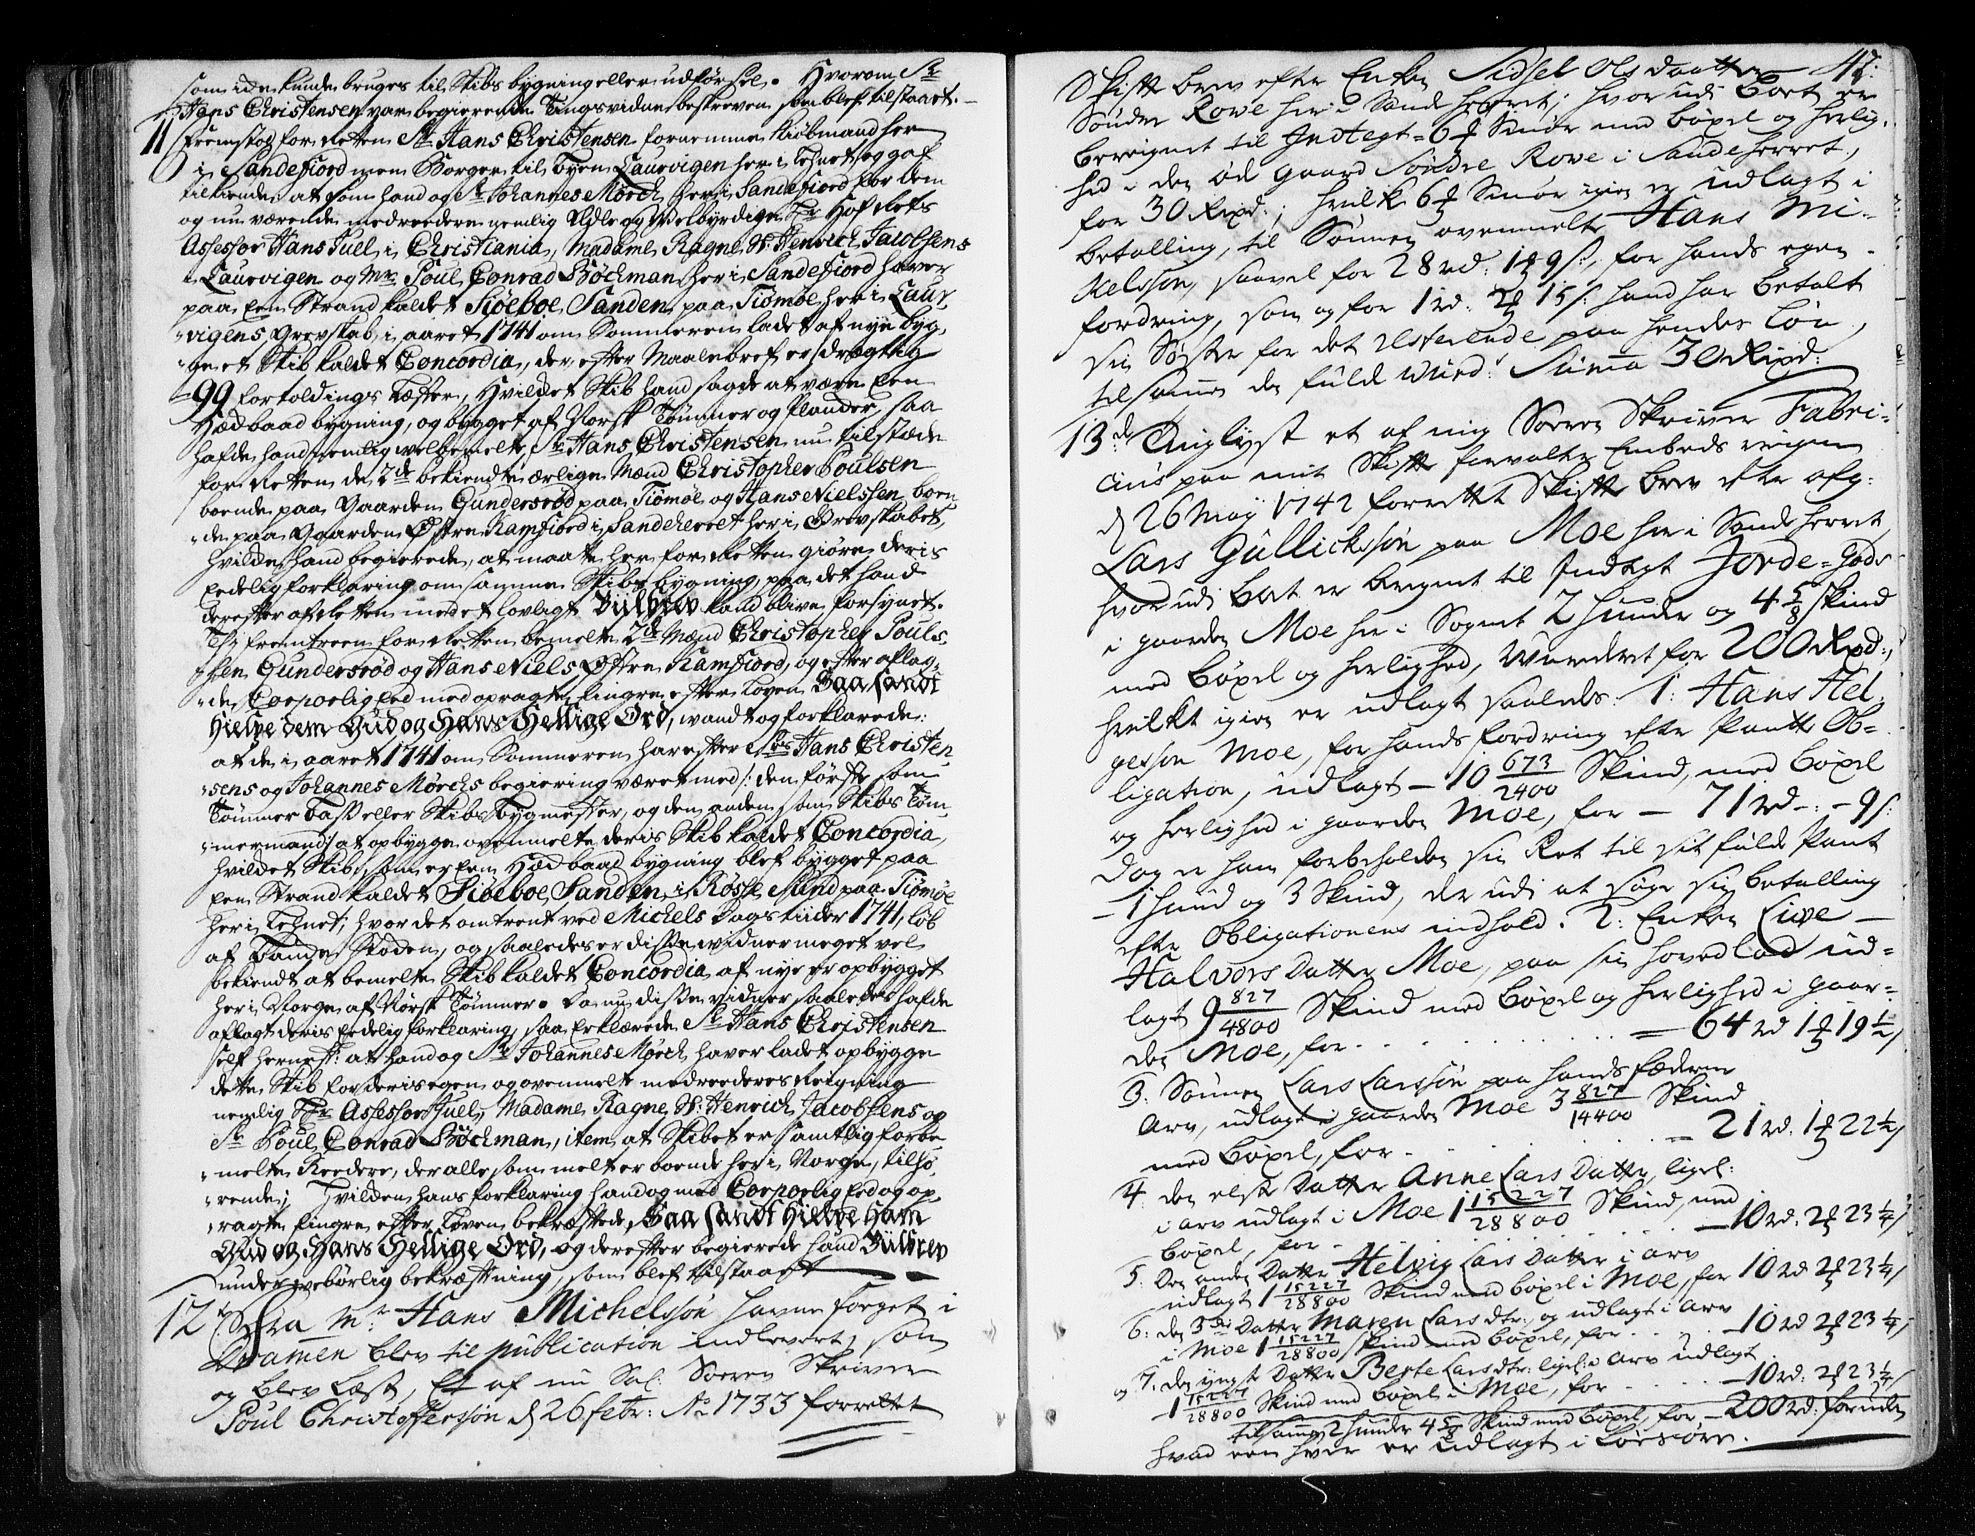 som iche kunde bruges til Skibs bygning eller udførsel. Hvorom Sr
Hans Christensen var begierende Tingsvidne beskreven som blef tilstaaet.
11 Fremstod for Retten Sr Hans Christensen fornemme Kiøbmand her
i Sandefiord men Borger til Byen Laurvigen her i Lehnet og gaf
tilkiende at som hand og Sr Johannes Mørch her i Sandefiord for dem
og nu værende medreedere nemlig Ædle og Velbyrdige Hr Hof Rets
Assessor Hans Juell i Christiania, Madame Ragne Sl Henrich Jacobsens
i Laurvigen og Mr Poul Conrad Bøckman her i Sandefiord haver
paa Een Strand kaldet Siøeboe Sanden paa Tiømøe her i Laur-
-vigens Grevskab, i aaret 1741 om Sommeren ladet af nye byg-
-get et Skib kaldet Concordia, der efter Maalebref er drægtig
99 fortoldings Læster, Hvilchet Skib hand sagde at være Een
Hædbaad bygning, og bygget af Norsk Tømmer og Plancher, saa
hafde hand nemlig velbemelte Sr Hans Christensen nu tilstæde
for Retten de 2de bekiendte ærlige Mænd Christopher Poulsen
boende paa Gaarden Gundersrød paa Tiømøe og Hans Nielssen boen-
-de paa Gaarden Østre Ramsiord i Sandeherret her i Grevskabet,
hvilche hand begierede, at maatte her for Retten giøre deris
Eedelig forklaring om samme Skibs bygning, paa det hand
derefter af Retten med et lovlagt Biilbrev kand blive forsynet.
Thi fremtreen for Retten bemelte 2de Mænd Christopher Pouls-
-sen Gundersrød og Hans Niels Østre Ramsiord, og efter aflag-
-de Corporlig Eed med opragte fingre efter Loven Saa sandt
Hielpe dem Gud og Hans Hellige Ord, vandt og forklarede:
at de i aaret 1741 om Sommeren har efter Srs Hans Christen-
-sens og Johannes Mørchs begiering været med /: den første som
Tømmer Bass eller Skibs Bygmester, og den anden som Skibs Tøm-
-mermand :/ at opbygge ovenmelte deris Skib kaldet Concordia,
hvilchet Skib, som er Een Hædbaad bygning blef bygget paa
Een Strand kaldet Siøeboe Sanden i Røsse Sund paa Tiømøe
her i Lehnet; hvor det omtrent ved Michels Dags tiider 1741, løb
af Bandestoden, og saaledes er disse widner meget vel
bekiendt at bemelte Skib kaldet Concordia af nye er opbygget
her i Norge af Norsk Tømmer. Da nu disse vidner saaledes hafde
aflagt deris Eedelig forklaring, saa Erklærede Sr Hans Christensen
self hernest: at hand og Sr Johannes Mørch haver ladet opbygge
dette Skib for deris egen og ovenmelte medreederes Reigning
nemlig Hr Assessor Juell, Madame Ragne Sl: Henrich Jacobsens og
Sr Poul Conrad Bøckman, item at Skibet er samtlig forbe-
-melte Reedere, der alle som melt er boende her i Norge, tilhø-
-rende; Hvilchen hans forklaring hand og med Corporlig Eed og op-
-ragte fingre efter Loven bekræftede, Saa sandt Hielpe Ham
Gud og Hans Hellige Ord, og derefter begierede hand Biilbrev
under gebørlig bekræftning, som blef tilstaaet
12 Fra Mr Hans Michelssøn Havne Foeget i
Dramen blev til publication indlevert, som
og blev Læst, Et af nu Sal: Soeren Skriver
Poul Christoffersøn d 26 febr: Ao 1733 forrettet
42:
Skifte brev efter Enken Sidsel Olsdaatter
Søndre Rove her i Sandeherret; hvorudi boet er
bereignet til Indtegt = 6 [?] Smør med bøxel og herlig-
hed i den øde gaard Søndre Rove i Sandeherret,
for 30 Rixd:; hvilke 6 [?] Smør igien er udlagt i
betalling, til Sønnen ovenmelte Hans Mi-
kelssøn, saavel for 28 rd: 1 [?] 9 s:, for hands egen
fordring, som og for 1 rd: 2 [?] 15 s: hand har betalt
sin Søster for det resterende paa hendes Løn,
tilsamen den fulde Wurd: Suma 30 Rixd:
13de Tinglyst et af mig Soeren Skriver Fabri-
cius paa mit Skifte forvalter Embeds veigne
d 26 May 1742 forrettet Skifte brev efter afg:
Lars Gullickssøn paa Moe her i Sandeherret,
hvorudi boet er beregnet til Indtegt Jorde-Gods
i gaarden Moe her i Sognet 2 hunder og 4 5/8 skind
med bøxel og herlighed, Wurderet for 200 Rxd:,
hvilket igien er udlagt saaleds: 1: Hans Hel-
gessøn Moe, for hands fordring efter Pante Ob-
ligation, udlagt - 10 673/2400 Skind, med bøxel
og herlighed i gaarden Moe, for - 71 rd - : - 9 s:
Dog er ham forbeholden sin Ret til sit fulde Pant
- 1 hund og 3 Skind, der udi at søge sin betalling
efter Obligationens indhold. 2: Enken Live
Halvors Datter Moe, paa sin hovedlod ud-
lagt 9 827/4800 Skind med bøxel og herlighed i gaar-
den Moe, for . . . . . . = 64 rd 1 [?] 19 1/2 s
3: Sønnen Lars Larssøn paa hands fæderne
Arv, udlagt i gaarden Moe 3 827/14400 Skind
med bøxel, for . . . . - 21 rd: 1 [?] 22 1/2 s
4: den elste Datter Anne Lars Datter, ligel:
i arv udlagt i Moe 1 15227/28800 Skind, med
bøxel, for - . . . . - 10 rd: 2 [?] 23 1/4 s
5: Den anden Datter Helvig Lars Datter i arv
udlagt 1 15227/28800 Skind med bøxel i Moe, for 10 rd 2 [?] 23 1/4 s
6: den 3die Datter Maren Lars dtr:, og udlagt i arv
i Moe 1 15227/28800 skind med bøxel, for . . . - 10 rd 2 [?] 23 1/4 s
og 7. den yngste Datter Berte Larsdtr: ligel: i arv udlagt
- 1 15227/28800 Skind med bøxel i Moe, for - - 10 rd: 2 [?] 23 1/4 s
tilsamen 2 hunder 4 5/8 Skind med bøxel, for - 200 rd: foruden
hvad een hver er udlagt i Løsøre.